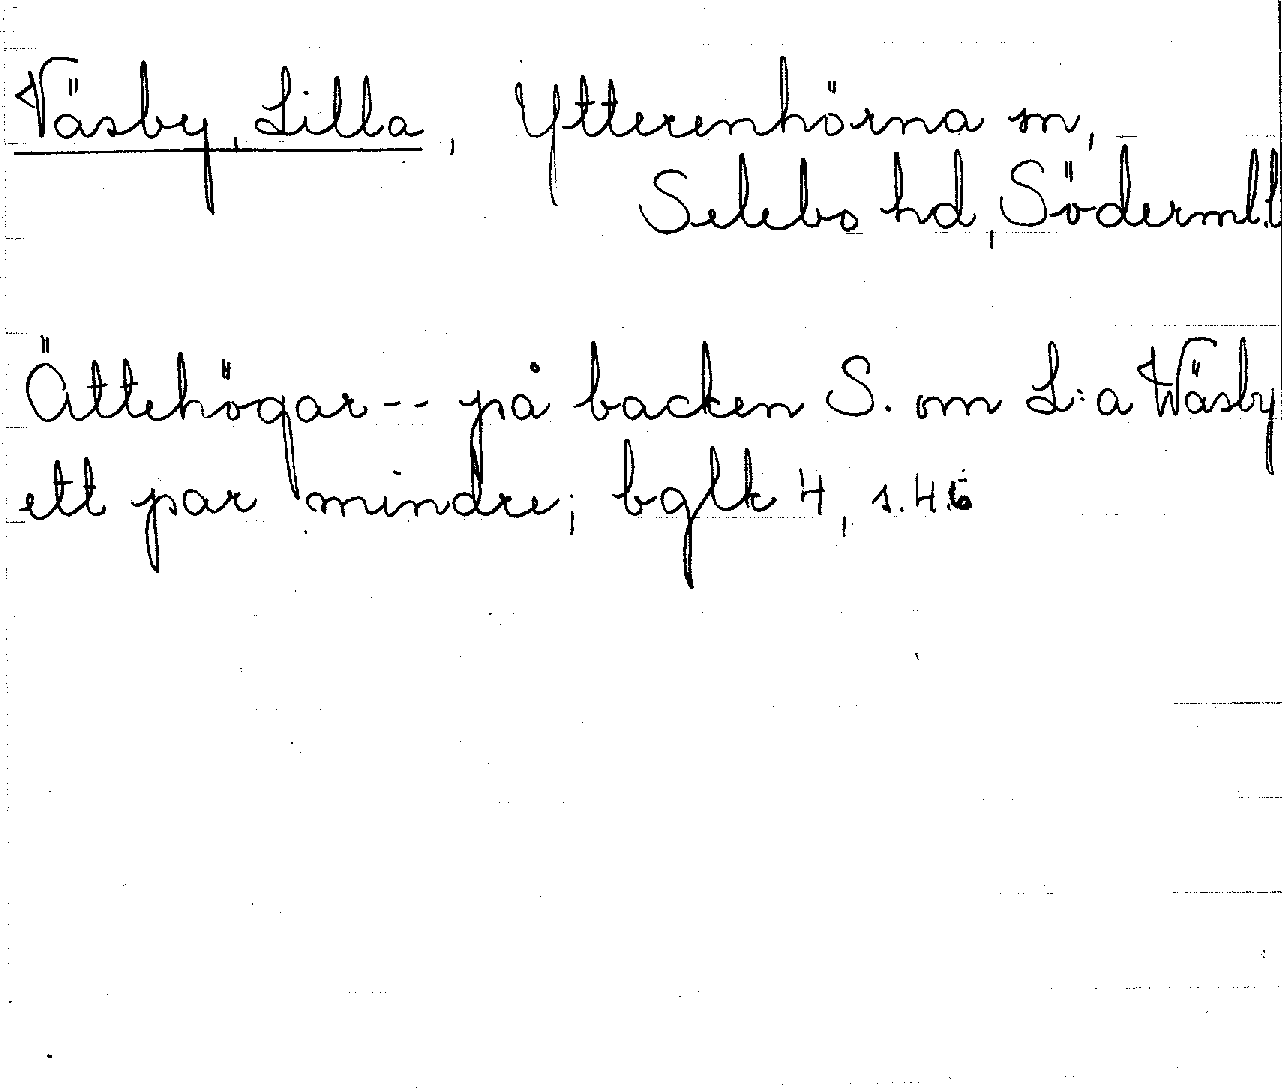 Väsby, Lilla, Ytterenhörna sn,
Selebo hd, Söderml.
Ättehögar-- på backen S. om L:a Wäsby
ett par mindre; bglk 4, s.46